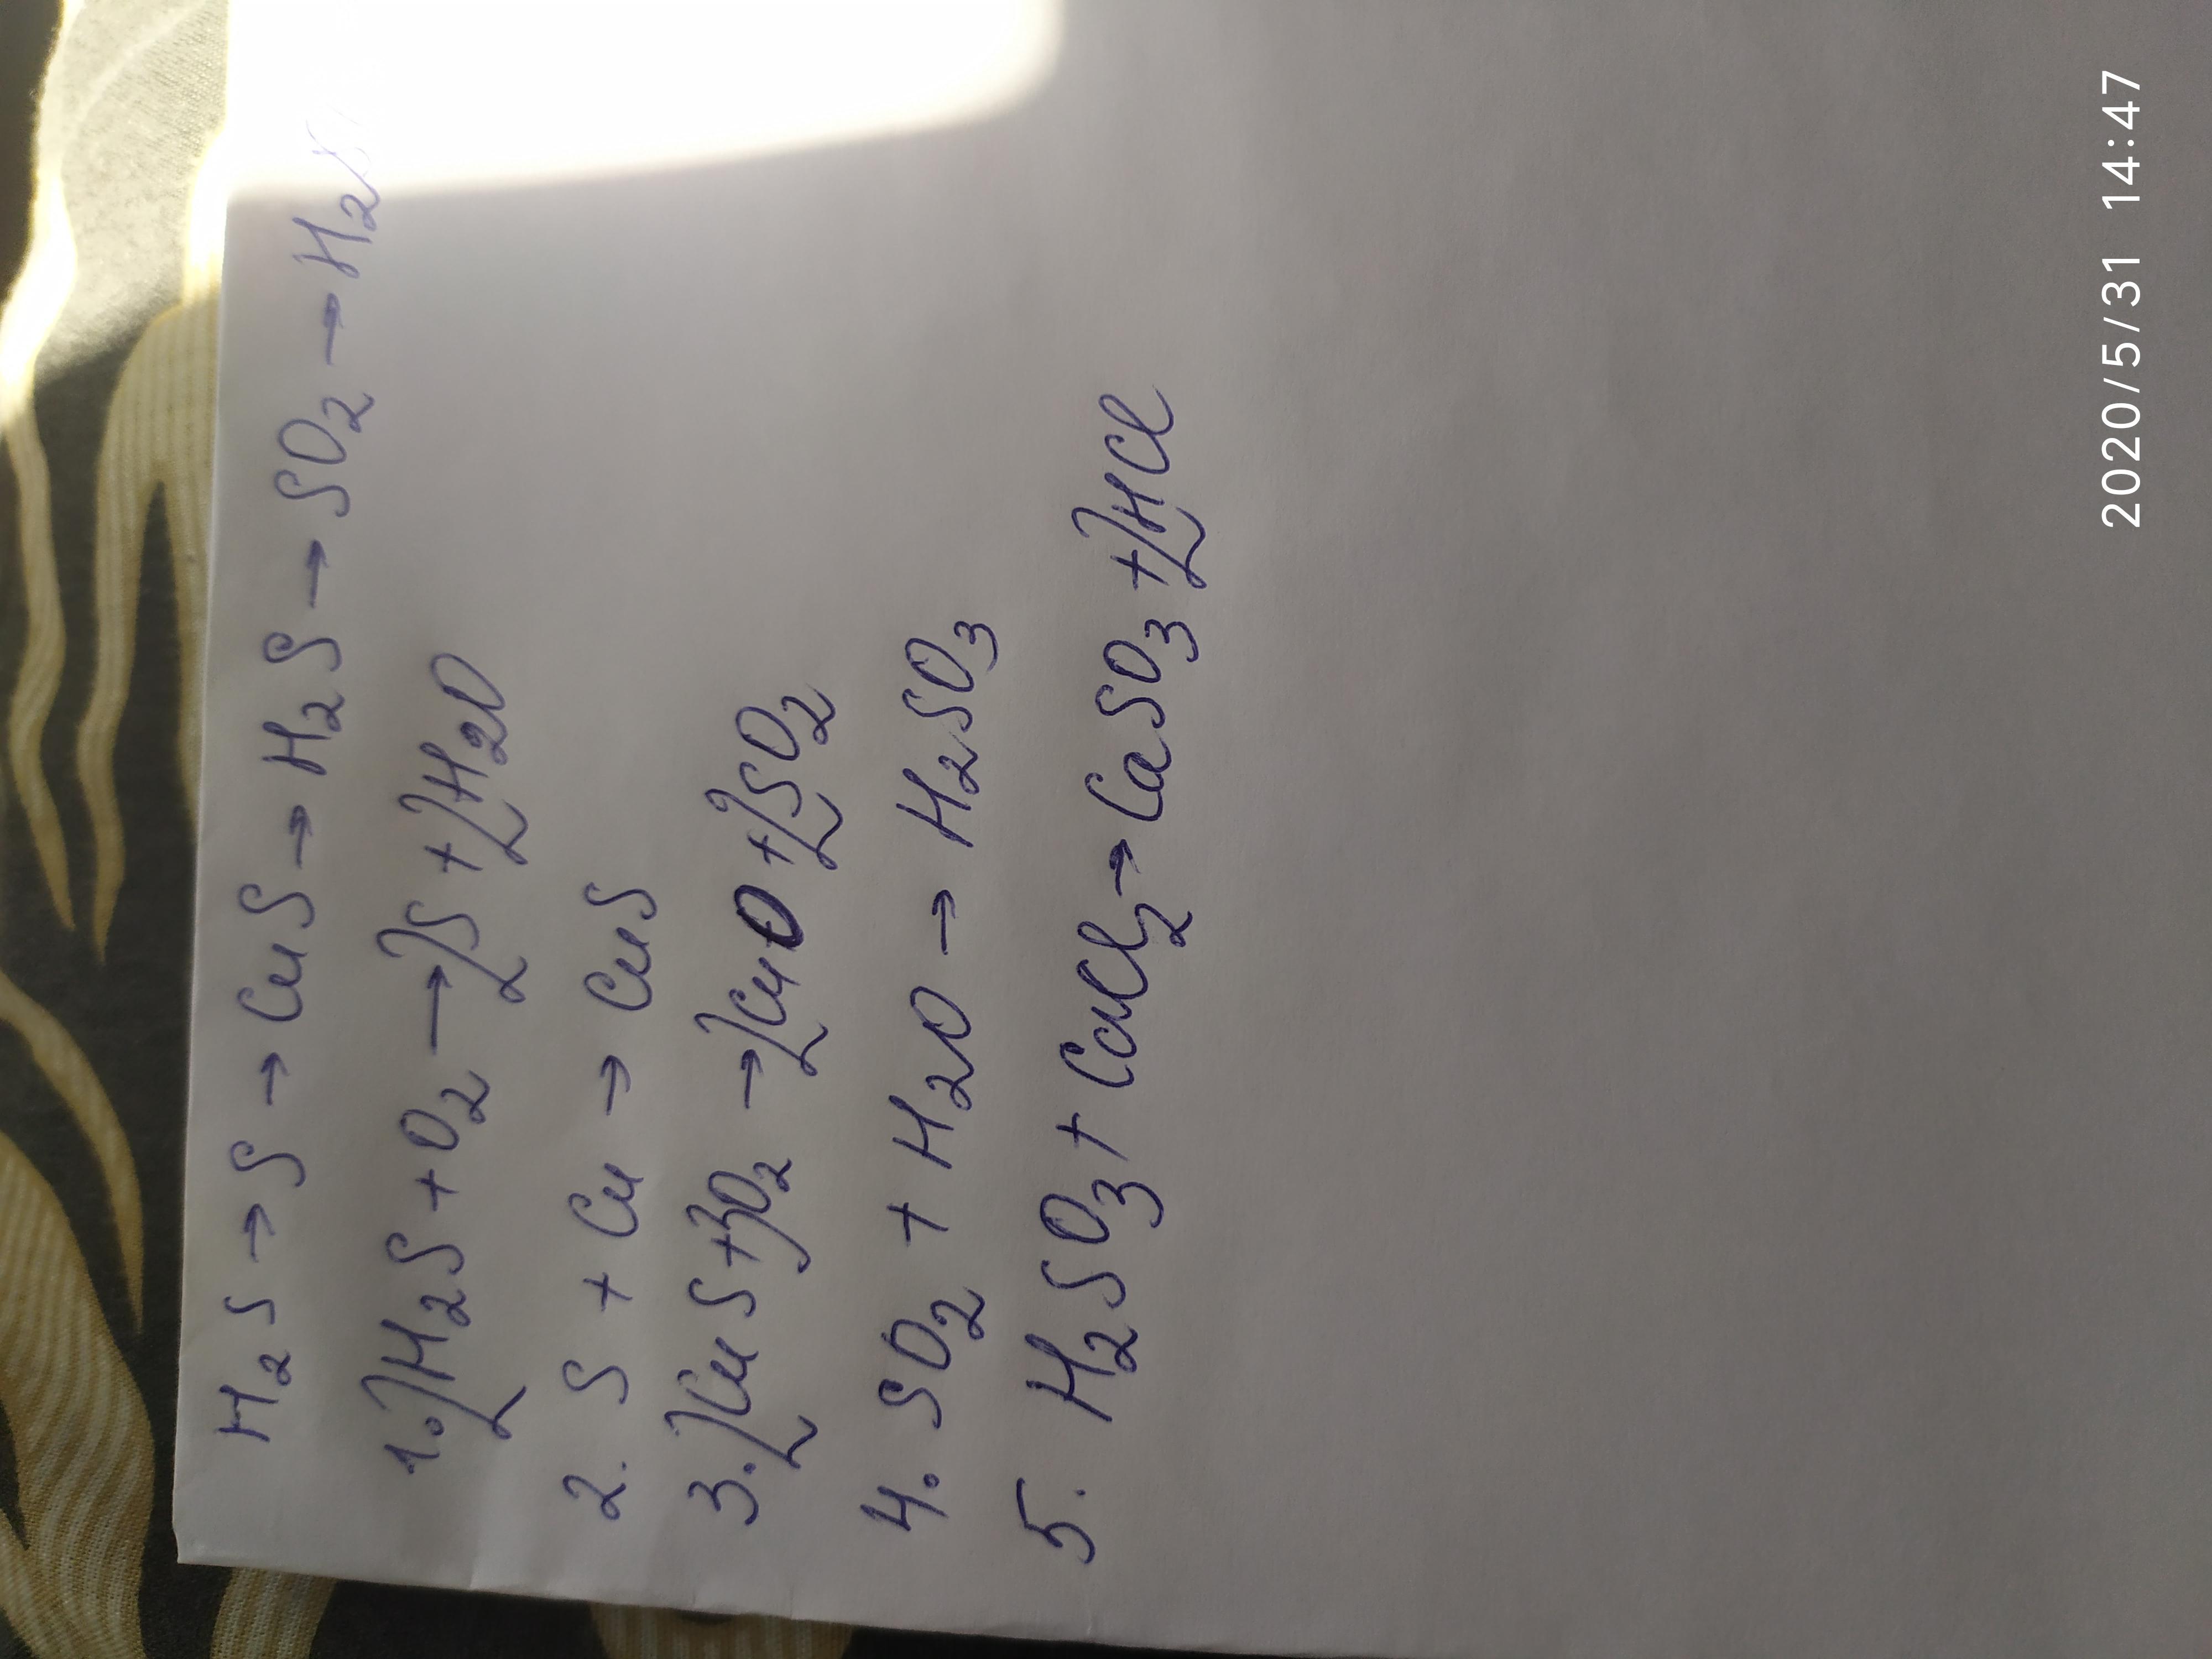 H₂S → S → CuS → H₂S → SO₂ → H₂S
1. 2H₂S + O₂ → 2S + 2H₂O
2. S + Cu → CuS
3. 2CuS + 3O₂ → 2CuO + 2SO₂
4. SO₂ + H₂O → H₂SO₃
5. H₂SO₃ + CaCl₂ → CaSO₃ + 2HCl
2020/5/31 14:47